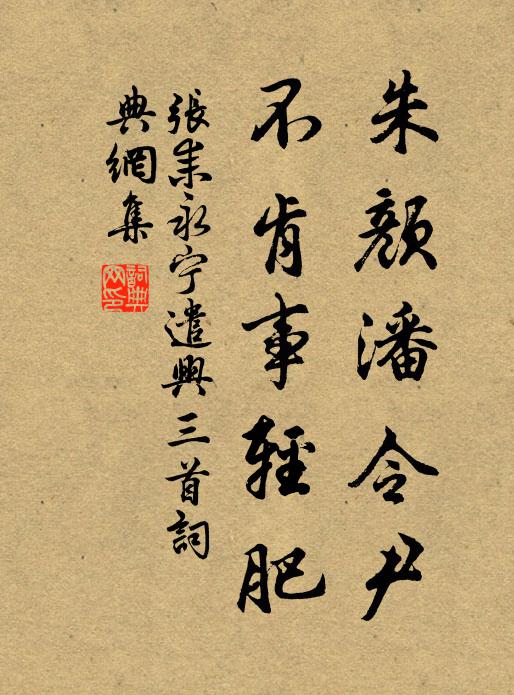 朱顏潘令尹
不肯事輕肥
張耒永宁遣興三首詞
典網集
詞典網印